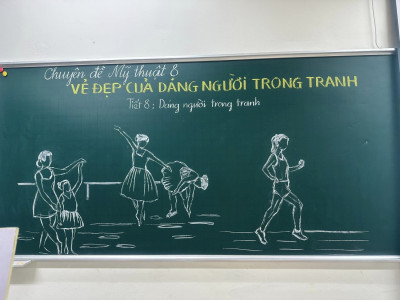 Chuyên đề Mỹ thuật 8
VẺ ĐẸP CỦA DÁNG NGƯỜI TRONG TRANH
Tiết 8: Dáng người trong tranh